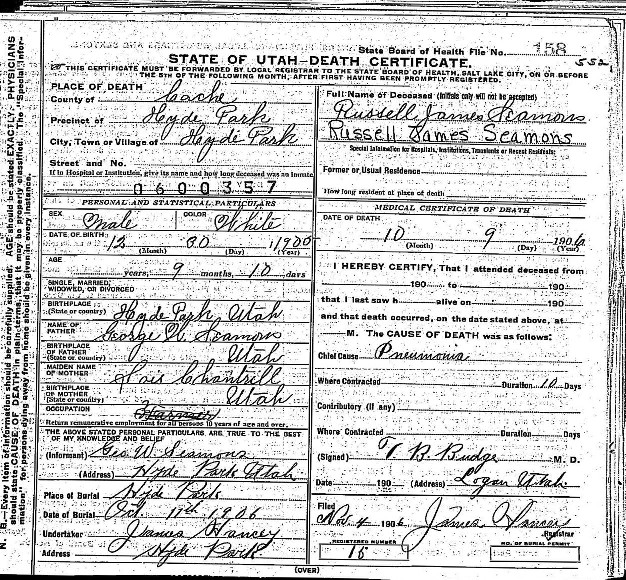 State Board of Health File No. 158
552
STATE OF UTAH—DEATH CERTIFICATE.
THIS CERTIFICATE MUST BE FORWARDED BY LOCAL REGISTRAR TO THE STATE BOARD OF HEALTH, SALT LAKE CITY, ON OR BEFORE
THE 5TH OF THE FOLLOWING MONTH, AFTER FIRST HAVING BEEN PROMPTLY REGISTERED.
PLACE OF DEATH
County of Cache
Precinct of Hyde Park
City, Town or Village of Hyde Park
Street and No.
If in Hospital or Institution, give its name and how long deceased was an inmate
0600357
PERSONAL AND STATISTICAL PARTICULARS
SEX Male COLOR White
DATE OF BIRTH 12 30 1905
(Month) (Day) (Year)
AGE
years, 9 months, 10 days
SINGLE, MARRIED,
WIDOWED, OR DIVORCED
BIRTHPLACE
(State or country) Hyde Park Utah
NAME OF
FATHER George W. Seamons
BIRTHPLACE
OF FATHER
(State or country) Utah
MAIDEN NAME
OF MOTHER Lois Chantrill
BIRTHPLACE
OF MOTHER
(State or country) Utah
OCCUPATION Farmer
Return remunerative employment for all persons 10 years of age and over.
THE ABOVE STATED PERSONAL PARTICULARS ARE TRUE TO THE BEST
OF MY KNOWLEDGE AND BELIEF
(Informant) Geo W. Seamons
(Address) Hyde Park Utah
Place of Burial Hyde Park
Date of Burial Oct. 11th 1906
Undertaker James Hancey
Address Hyde Park
Full Name of Deceased (Initials only will not be accepted)
Russell James Seamons
Russell James Seamons
Special Information for Hospitals, Institutions, Transients or Recent Residents:
Former or Usual Residence
How long resident at place of death
MEDICAL CERTIFICATE OF DEATH
DATE OF DEATH
10 9 1906
(Month) (Day) (Year)
I HEREBY CERTIFY, That I attended deceased from
190 to 190
that I last saw h alive on 190
and that death occurred, on the date stated above, at
M. The CAUSE OF DEATH was as follows:
Chief Cause Pneumonia
Where Contracted Duration 10 Days
Contributory (if any)
Where Contracted Duration Days
(Signed) T B. Budge M. D.
Date 190 (Address) Logan Utah
Filed
Nov. 4 1906 James Hancey
Registrar
REGISTERED NUMBER NO. OF BURIAL PERMIT
15
(OVER)
N. B.—Every item of information should be carefully supplied. AGE should be stated EXACTLY. PHYSICIANS
should state CAUSE OF DEATH in plain terms, that it may be properly classified. The "Special Infor-
mation" for persons dying away from home should be given in every instance.